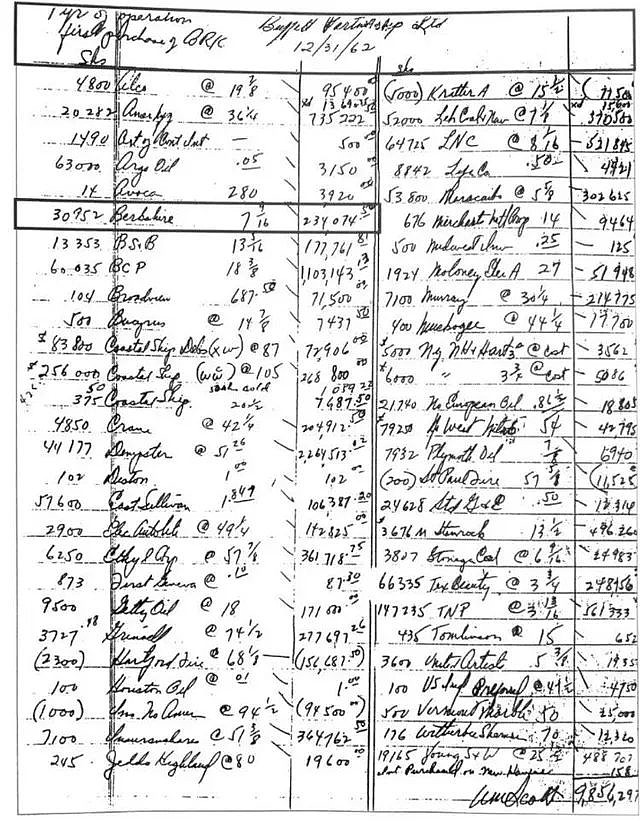 1 yr of operation
first purchase of BRK
Buffett Partnership Ltd
12/31/62
Shs
shs
4800 @ 19 7/8 95400 00
20282 @ 36 1/4 735222
1490 Art of Cont Inst — 500 00
63000 Argo Oil .05 3150 00
14 Avoca 280 3920 00
30952 Berkshire 7 9/16 234074 50
13353 BSB 13 5/16 177,761 81
60,035 BCP 18 3/8 1,103,143 13
104 Broadview 687.50 71,500 00
500 @ 14 7/8 7437 50
$83800 Coastal Ship Debs (xw) @ 87 72,906 00
$256000 Coastal Ship (ww) @ 105 268 800
375 Coastal Ship. 20 1/2 7,687.50
4850 Crane @ 42 1/4 204912 50
44177 Dempster @ 51 26 2,264,513 02
102 Diston 1 00 102 00
57600 East Sullivan 1.849 106387.20
2900 Elec Autolite @ 49 1/4 142825 00
6250 Ethyl Corp @ 57 7/8 361,718.75
873 First Geneva @ .10 87.30
9500 Getty Oil @ 18 171000 00
3727 Grinnell @ 74 1/2 277697 26
(2300) Hartford Fire @ 68 1/8 (156,687.50)
100 Houston Oil @ 01 1.00
(1000) Ins. No Amer @ 94 1/2 (94500 00)
7100 Insuranshares @ 51 3/8 364762
245 Jeddo Highland @ 80 19600 00
(5000) Kratter A @ 15 1/2 (77,500
52000 Leh Coal & Nav @ 7 1/8 370500
64725 LNC @ 8 1/16 521845
8842 Life Co .50 4421
53800 Maracaibo @ 5 5/8 302625
676 Merchant Nat Prop 14 9464
500 Midwest Inv .25 125
1924 Moloney Elec A 27 51948
7100 Murray @ 30 1/4 214775
400 Muskogee @ 44 1/4 17,700
$5000 Ny, NH & Hart @ cost 3562
$6000 " @ cost 5086
21740 No European Oil .86 1/2 18805
$7925 No West 54 42795
7932 Plymouth Oil 7/8 6940
(200) St Paul Fire 57 5/8 (11,525
24628 Std G&E .50 12,314
3676 m 13 1/2 496,260
3807 Stonega Coal @ 6 9/16 24983
66335 Tex @ 3 3/4 248756
147235 TNP @ 3 13/16 561,333
435 Tomlinson @ 15 652
3600 United Artists 5 3/8 1935
100 US Ind Preferred @ 47 1/2 4750
500 Vermont Marble 50 25,000
176 Witherbee Sherman 70 12,320
19165 Young S&W @ 25 1/2 488 707
Int Purchased on 158
WmScott 9,856,297